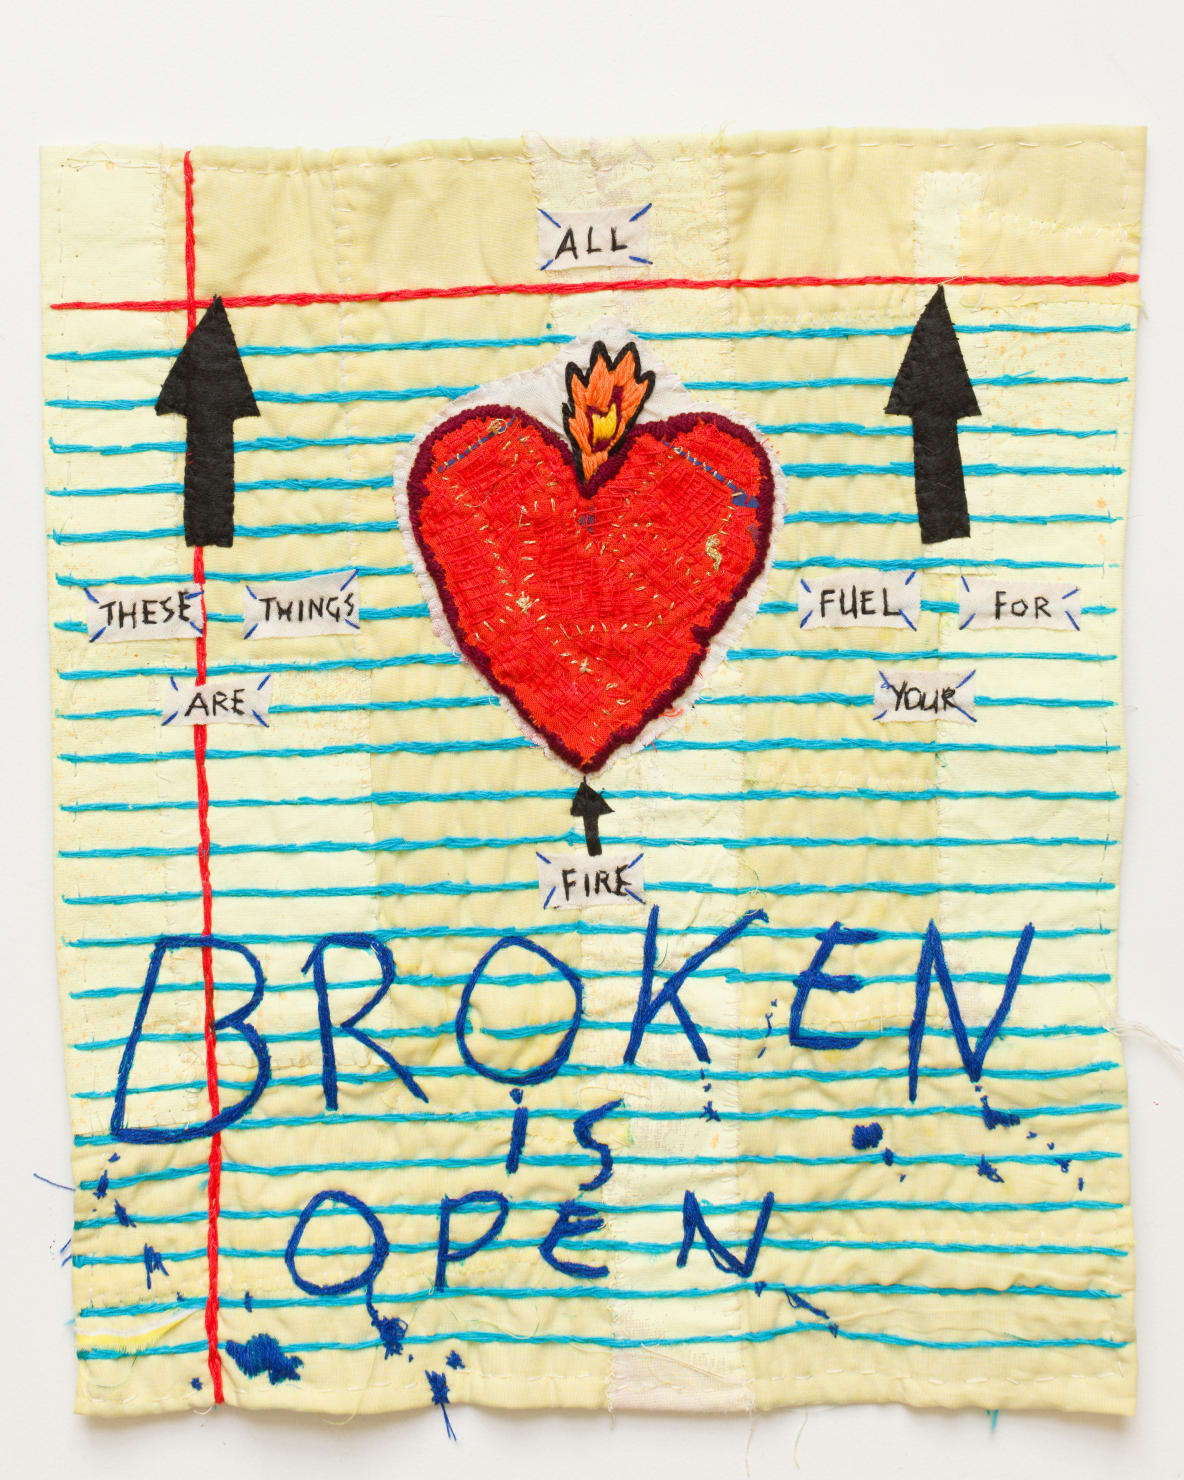 ALL
THESE THINGS FUEL FOR
ARE YOUR
FIRE
BROKEN
iS
OPEN